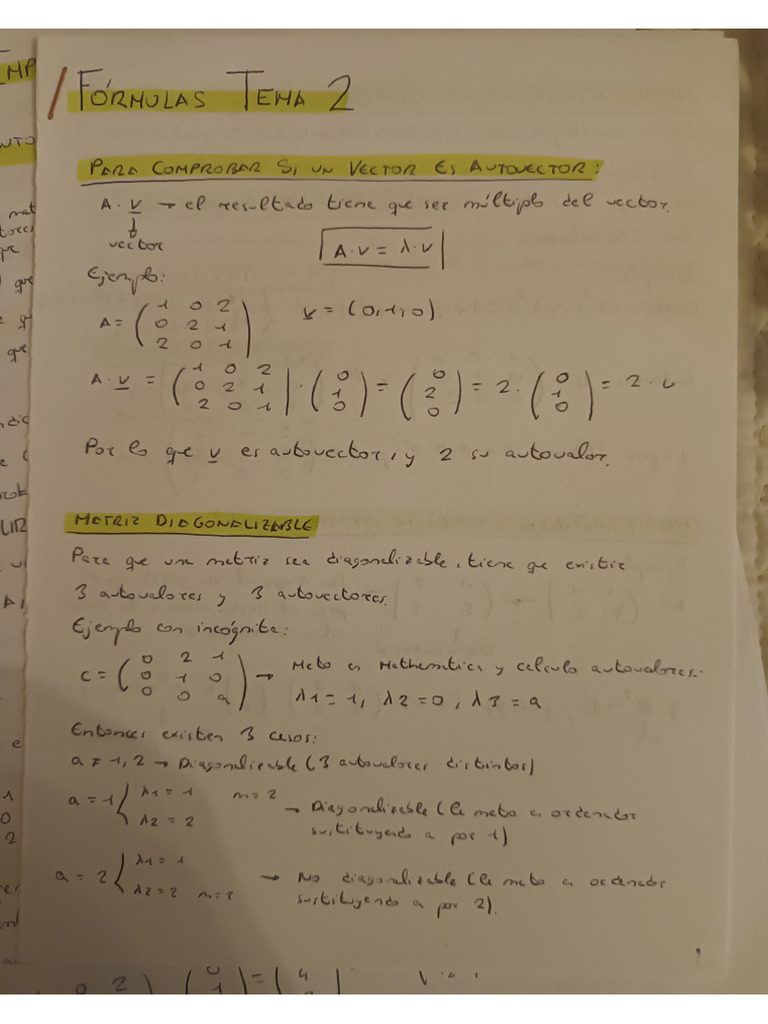 FÓRMULAS TEMA 2
PARA COMPROBAR SI UN VECTOR ES AUTOVECTOR:
A · v → el resultado tiene que ser múltiplo del vector.
vector
A·v = λ·v
Ejemplo:
A = (1 0 2
0 2 1
2 0 1)
v = (0,1,0)
A·v = (1 0 2
0 2 1
2 0 1) · (0
1
0) = (0
2
0) = 2 · (0
1
0) = 2 · v
Por lo que v es autovector, y 2 su autovalor.
MATRIZ DIAGONALIZABLE
Para que una matriz sea diagonalizable, tiene que existir
3 autovalores y 3 autovectores.
Ejemplo con incógnita:
C = (0 2 1
0 1 0
0 0 a) → Meto en Mathematica y calculo autovalores:
λ1 = 1, λ2 = 0, λ3 = a
Entonces existen 3 casos:
a ≠ 1,2 → Diagonalizable (3 autovalores distintos)
a = 1 { λ1 = 1 m=2
λ2 = 2
→ Diagonalizable (lo meto en ordenador
sustituyendo a por 1)
a = 2 { λ1 = 1
λ2 = 2 m=2
→ No diagonalizable (lo meto en ordenador
sustituyendo a por 2).